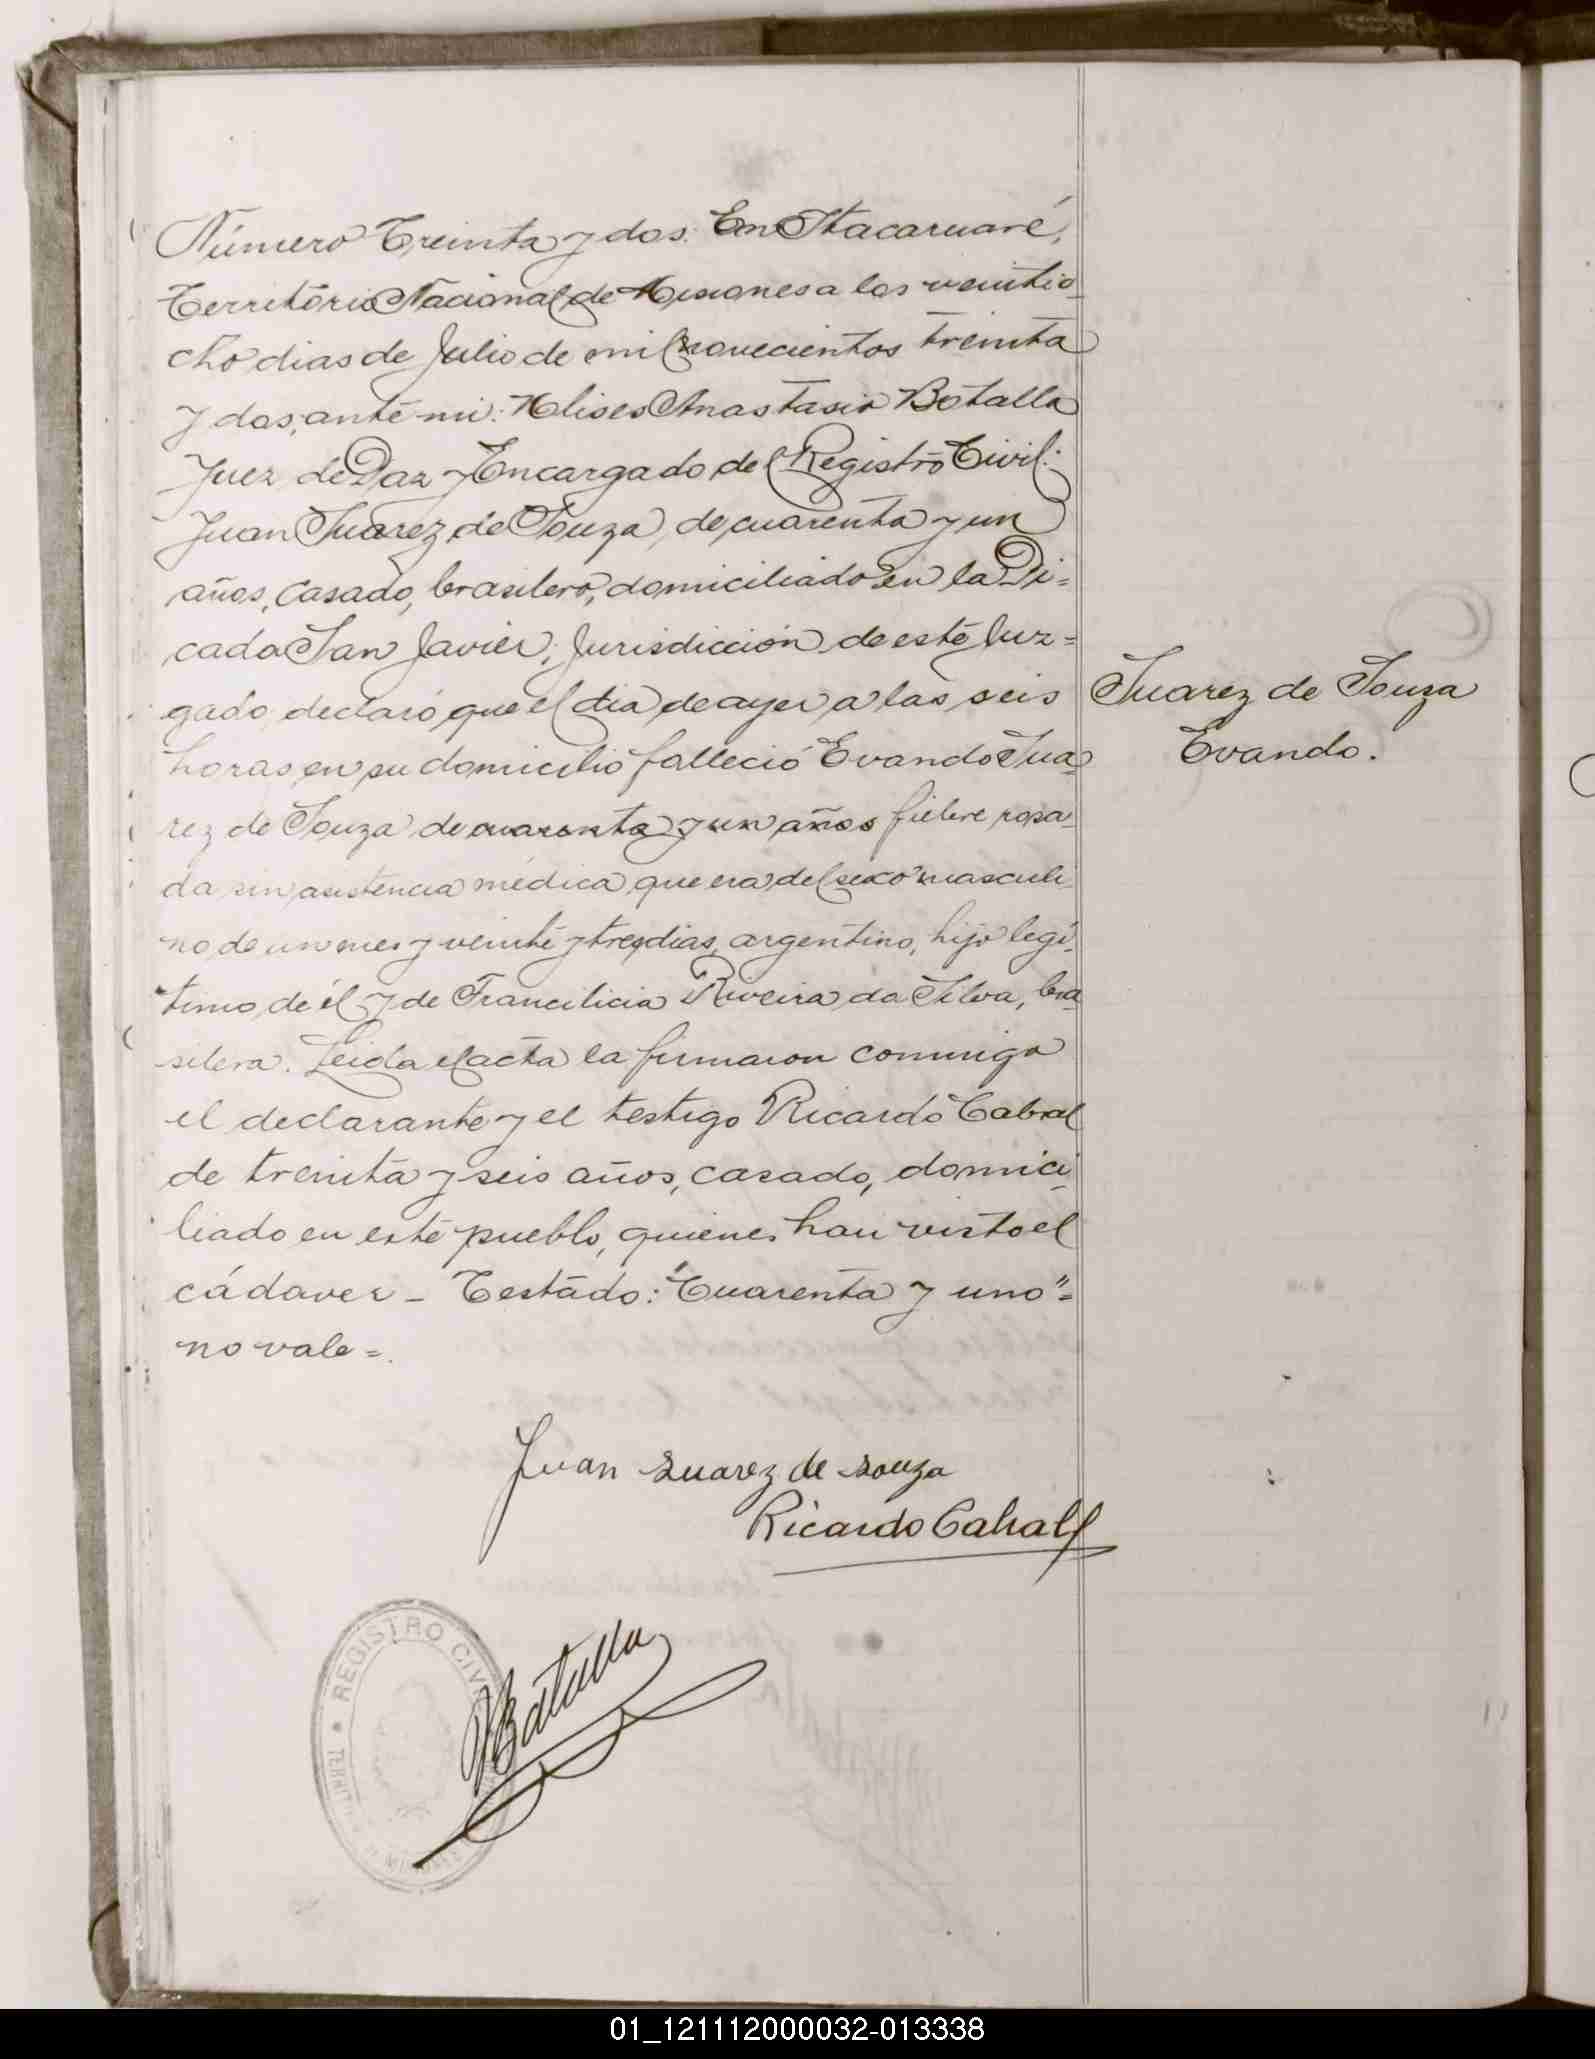 Número Treinta y dos. En Itacaruaré,
Território Nacional de Misiones a los veintio
cho dias de Julio de mil novecientos treinta
y dos, ante mi: Ulises Anastasio Botalla
Juez de Paz y Encargado del Registro Civil:
Juan Suarez de Souza, de cuarenta y un
años, casado, brasilero, domiciliado en la Pi=
cada San Javier, Jurisdicción de este Juz=
gado, declaró que el dia de ayer a las seis
horas, en su domicilio falleció Evando Sua
rez de Souza de cuarenta y un años fiebre rosa
da sin asistencia médica, que era del sexo masculi
no de un mes y veinte y tres dias, argentino, hijo legí
timo, de él y de Francilicia Riveira da Silva, bra
silera. Leida el acta la firmaron conmigo
el declarante y el testigo Ricardo Cabral
de treinta y seis años, casado, domici
liado en este pueblo, quienes han visto el
cádaver - Testado: "Cuarenta y uno"=
no vale=.
Suarez de Souza
Evando.
Juan Suarez de Souza
Ricardo Cabral
Batalla
REGISTRO CIVIL
01_121112000032-013338